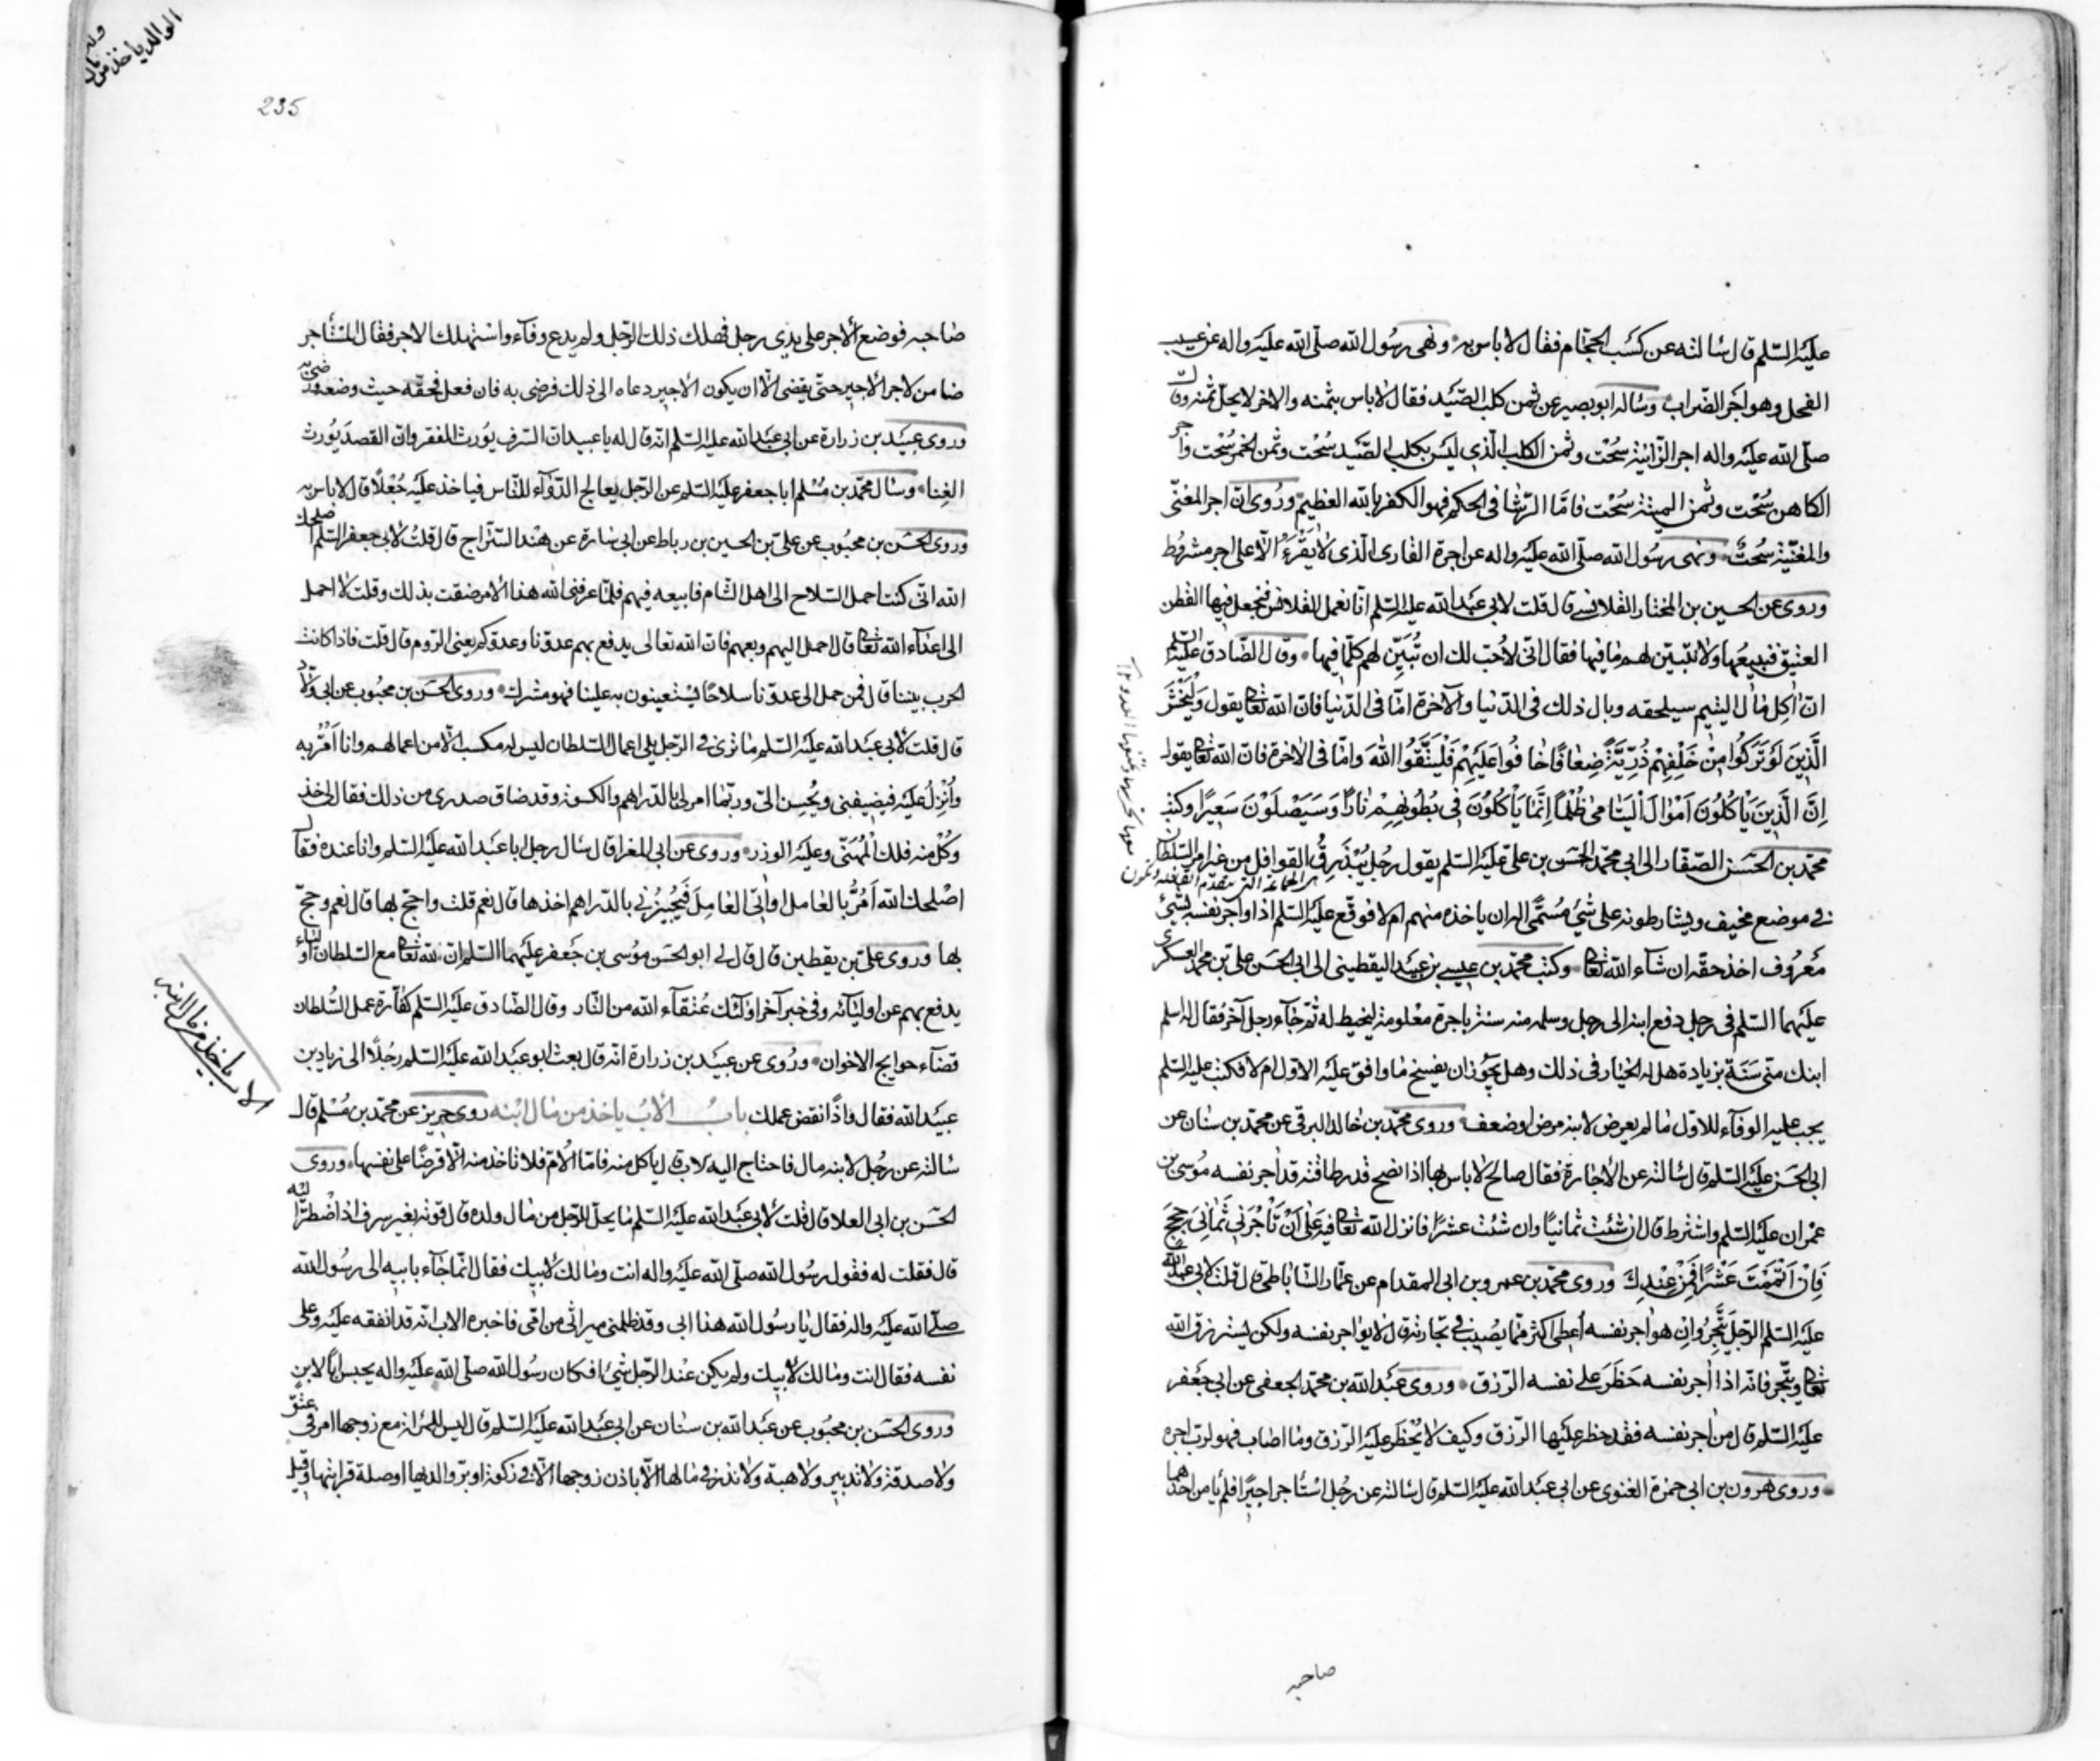 عليه السلم قال سالته عن كسب الحجام فقال لا باس به ونهى رسول الله صلى الله عليه واله عن عسيب
الفحل وهو اجر الضراب وساله ابو بصير عن ثمن كلب الصيد فقال لا باس بثمنه والاخر لا يحل ثمنه وقال
صلى الله عليه واله اجر الزانية سُحْت وثمن الكلب الذي ليس بكلب الصيد سُحْت وثمن الخمر سُحْت واجر
الكاهن سُحْت وثمن الميتة سُحْت فامّا الرشا في الحكم فهو الكفر بالله العظيم ورُوى انّ اجر المغنّى
والمغنّية سُحتٌ ونهى رسُول الله صلّى الله عليه واله عن اجرة القارى الّذى لا يقرء الّا على اجر مشروط
وروى عن الحسين بن المختار القلانسي قال قلت لابي عبد الله عليه السلم انّا نعمل القلانس فنجعل فيها القطن
العتيق فنبيعها ولا نبيّن لهم ما فيها فقال انّى لأحبّ لك ان تُبيّن لهم كلّما فيها وقال الصّادق عليه السلم
انّ اكل مال اليتيم سيلحقه وبال ذلك فى الدّنيا والآخرة امّا فى الدّنيا فانّ الله تعا يقول وَلْيَخْشَ
الَّذِينَ لَوْ تَرَكُوا مِنْ خَلْفِهِمْ ذُرِّيَّةً ضِعَافًا خَافُوا عَلَيْهِمْ فَلْيَتَّقُوا اللهَ وامّا فى الاخرة فانّ الله تعا يقول
اِنَّ الَّذِينَ يَأْكُلُونَ اَمْوَالَ الْيَتَامىٰ ظُلْمًا اِنَّمَا يَأْكُلُونَ فِى بُطُونِهِمْ نَارًا وَسَيَصْلَوْنَ سَعِيرًا وكتب
محمّد بن الحسن الصفّار الى ابى محمّد الحسن بن علىّ عليه السلم يقول رجُل يُبَذرِقُ القوافل من غير امر السلطان
فى موضع مخيف ويشارطونه على شئ مُسَمّى اله ان ياخذه منهم ام لا فوقّع عليه السلم اذا واجر نفسه بشئ
مَعْرُوف اخذ حقّه ان شاء الله تعا وكتب محمّد بن عيسى بن عبيد اليقطينى الى ابى الحسن على بن محمد العسكرى
عليهما السلم فى رجل دفع ابنه الى رجل وسلمه منه سنة باجرة معْلومة ليخيط له ثمّ جاء رجل آخر فقال له سلم
ابنك منّى سَنَة بزيادة هل له الخيار فى ذلك وهل يجوز ان يفسخ ما وافق عليه الاوّل ام لا فكتب عليه السلم
يجب عليه الوفاء للاوّل ما لم يعرض لابنه مرض او ضعف وروى محمّد بن خالد البرقى عن محمّد بن سنان عن
ابى الحسن عليه السلم قال سالته عن الاجارة فقال صالح لا باس بها اذا نصح قدر طاقته قد اجر نفسه مُوسى بن
عمران عليه السلم واشترط قال ان شئت ثمانيًا وان شئت عشرًا فانزل الله تعا فيه عَلىٰ اَنْ تَأْجُرَنِى ثَمَانِىَ حِجَج
فَاِنْ اَتْمَمْتَ عَشْرًا فَمِنْ عِنْدِكَ وروى محمّد بن عمرو بن ابى المقدام عن عمّار السّاباطى قال قلت لابى عبد الله
عليه السلم الرّجل يتّجر وان هو اجر نفسه اُعطى اكثر ممّا يُصيب فى تجارته قال لا يواجر نفسه ولكن يسترزق الله
تعا ويتّجر فانّه اذا اجر نفسه حَظَرَ على نفسه الرّزق وروى عبد الله بن محمّد الجعفى عن ابى جعفر
عليه السلم قال من اجر نفسه فقد حظر عليها الرّزق وكيف لا يُحْظر عليه الرّزق وما اصاب فهو لربّ اجره
وروى هرون بن ابى حمزة الغنوى عن ابى عبد الله عليه السلم قال سالته عن رجُل اسْتأجر اجيرًا فلم يأمن احدهما
صاحبه
235
صاحبه فوضع الاجر على يدى رجل فهلك ذلك الرّجل ولم يدع وفآء واستهلك الاجر فقال المستأجر
ضامن لاجر الاجير حتّى يقضى الّا ان يكون الاجير دعاه الى ذلك فرضى به فان فعل فحقّه حيث وضعه ورضى به
وروى عبيد بن زرارة عن ابى عبد الله عليه السلم انّه قال له يا عبيد انّ السّرف يورث الفقر وانّ القصد يُورث
الغِنا وسال محمّد بن مُسْلم ابا جعفر عليه السلم عن الرّجل يعالج الدّوآء للنّاس فياخذ عليه جُعْلًا قال لا باس به
وروى الحسَن بن محبُوب عن علىّ بن الحسين بن رباط عن ابى سارة عن هند السّرّاج قال قلتُ لابى جعفر السلم اصلحك
الله انّى كنت احمل السّلاح الى اهل الشام فابيعه فيهم فلمّا عرفنى الله هذا الامر ضقت بذلك وقلت لا احمل
الى اعدآء الله تعا قال احمل اليهم وبعهم فانّ الله تعالى يدفع بهم عدوّنا وعدوّكم يعنى الروم قال قلت فاذا كانت
الحرب بيننا قال فمن حمل الى عدوّنا سلاحًا يستعينون به علينا فهو مشرك وروى الحسَن بن محبُوب عن ابى ولّاد
قال قلت لابى عبد الله عليه السلم ما ترى فى الرّجل يلى اعمال السّلطان ليس له مكسب الّا من اعمالهم وانا اَمُرُّ به
واُنْزِلُ عليه فيُضيفنى ويُحسِن الىّ وربّما امر لى بالدّراهم والكسوة وقد ضاق صدرى من ذلك فقال لى خذ
وَكُلْ منه فلك الْمُهَنّى وعليه الوزر وروى عن ابى المغرا قال سال رجل ابا عبد الله عليه السلم وانا عنده فقال
اصْلحك الله اَمُرُّ بالعامل او اٰتِى العَامِلَ فَيُجيزُنى بالدّراهم اخذها قال نعم قلت واحجّ بها قال نعم وحجّ
بها وروى علىّ بن يقطين قال قال لى ابو الحسَن مُوسى بن جَعفر عليهما السلم انّ لله تعا مع السّلطان اولياء
يدفع بهم عن اوليآئه وفى خبر آخر اولٰئك عُتقآء الله من النّار وقال الصّادق عليه السلم كفّارة عمل السُّلطان
قضآء حوايج الاخوان ورُوى عن عبيد بن زرارة انّه قال بعث ابو عبد الله عليه السلم رجُلًا الى زياد بن
عبيد الله فقال واذا نقض عملك باب الاب ياخذ من مال ابنه روى حريز عن محمّد بن مُسْلم قال
سالته عن رجُل لابنه مال فاحتاج اليه الاب قال ياكل منه فامّا الامّ فلا تاخذ منه الّا قرضًا على نفسها وروى
الحسَن بن ابى العلا قال قلت لابى عبد الله عليه السلم ما يحلّ للرّجل من مال ولده قال قوته بغير سرف اذا اضْطرّ اليه
قال فقلت له فقول رسُول الله صلّى الله عليه واله انت ومالك لابيك فقال انّما جآء بابيه الى رسُول الله
صلّى الله عليه واله فقال يا رسُول الله هذا ابى وقد ظلمنى ميراثى من امّى فاخبره الاب انّه قد انفقه عليه وعلى
نفسه فقال انت ومالك لابيك ولم يكن عند الرّجل شئ افكان رسُول الله صلّى الله عليه واله يحبس ابًا لابن
وروى الحسَن بن محبُوب عن عبد الله بن سنان عن ابى عبد الله عليه السلم قال ليس للمراة مع زوجها امر فى عتق
ولا صدقة ولا تدبير ولا هبة ولا نذر فى مالها الّا باذن زوجها الّا فى زكوة او برّ والديها او صلة قرابتها وقيل
الاب ياخذ من مال ابنه
الوالد ياخذ من مال ولده